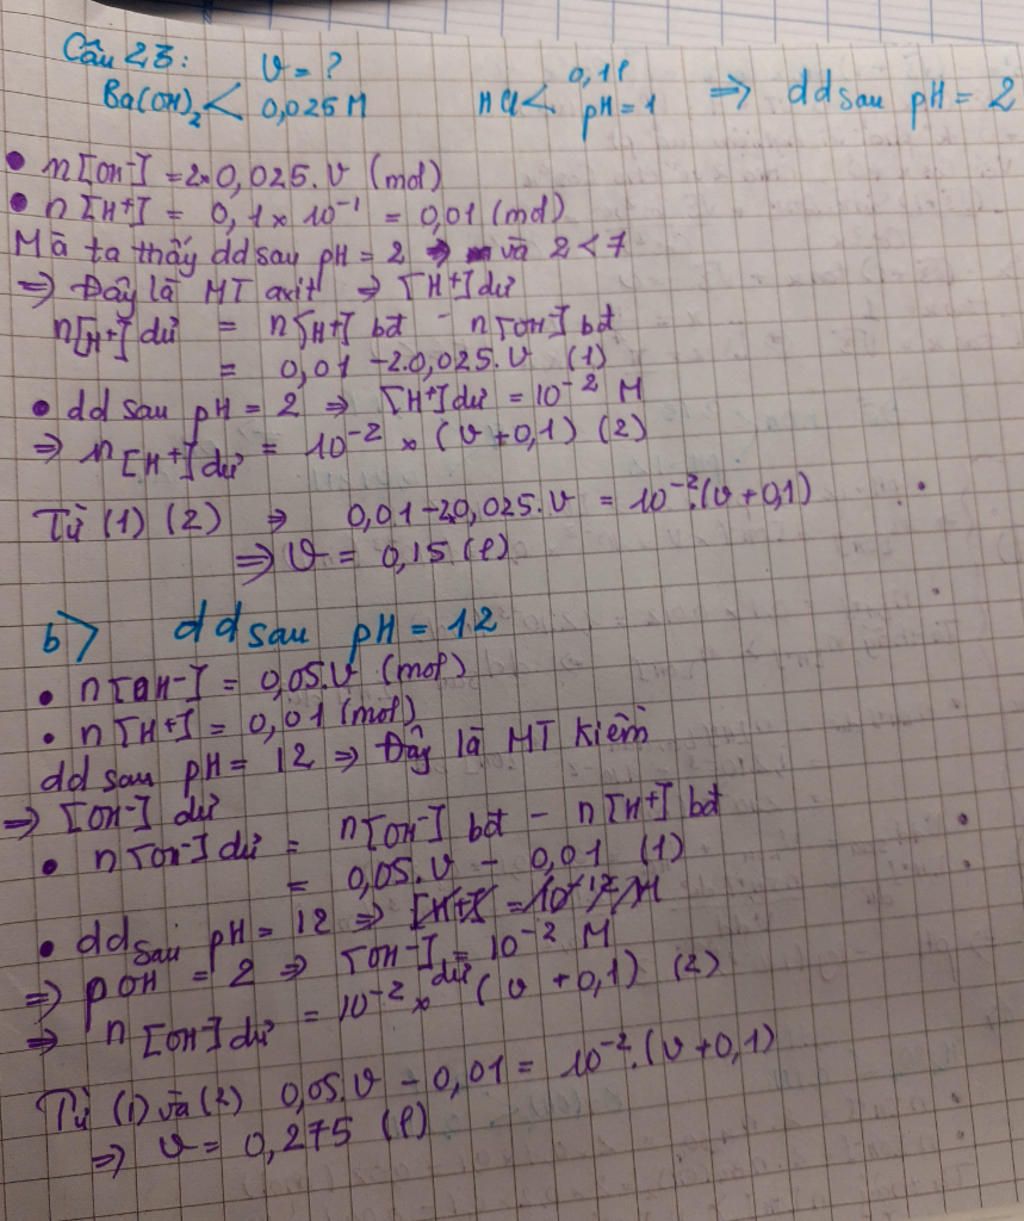 Câu 23: V = ?
Ba(OH)₂ < 0,025 M HCl < 0,1l pH = 1 => dd sau pH = 2
• n[OH⁻] = 2×0,025.V (mol)
• n[H+] = 0,1 × 10⁻¹ = 0,01 (mol)
Mà ta thấy dd sau pH = 2 và 2 < 7
=> Đây là MT axit => [H+] dư
n[H+] dư = n[H+] bđ - n[OH⁻] bđ
= 0,01 - 2.0,025.V (1)
• dd sau pH = 2 => [H+] dư = 10⁻² M
=> n[H+] dư = 10⁻² × (V + 0,1) (2)
Từ (1) (2) => 0,01 - 2.0,025.V = 10⁻².(V + 0,1)
=> V = 0,15 (l)
b> dd sau pH = 12
• n[OH⁻] = 0,05.V (mol)
• n[H+] = 0,01 (mol)
dd sau pH = 12 => Đây là MT Kiềm
=> [OH⁻] dư
• n[OH⁻] dư = n[OH⁻] bđ - n[H+] bđ
= 0,05.V - 0,01 (1)
• dd sau pH = 12 =>
=> pOH = 2 => [OH⁻] dư = 10⁻² M
=> n[OH⁻] dư = 10⁻² × (V + 0,1) (2)
Từ (1) và (2) 0,05.V - 0,01 = 10⁻².(V + 0,1)
=> V = 0,275 (l)